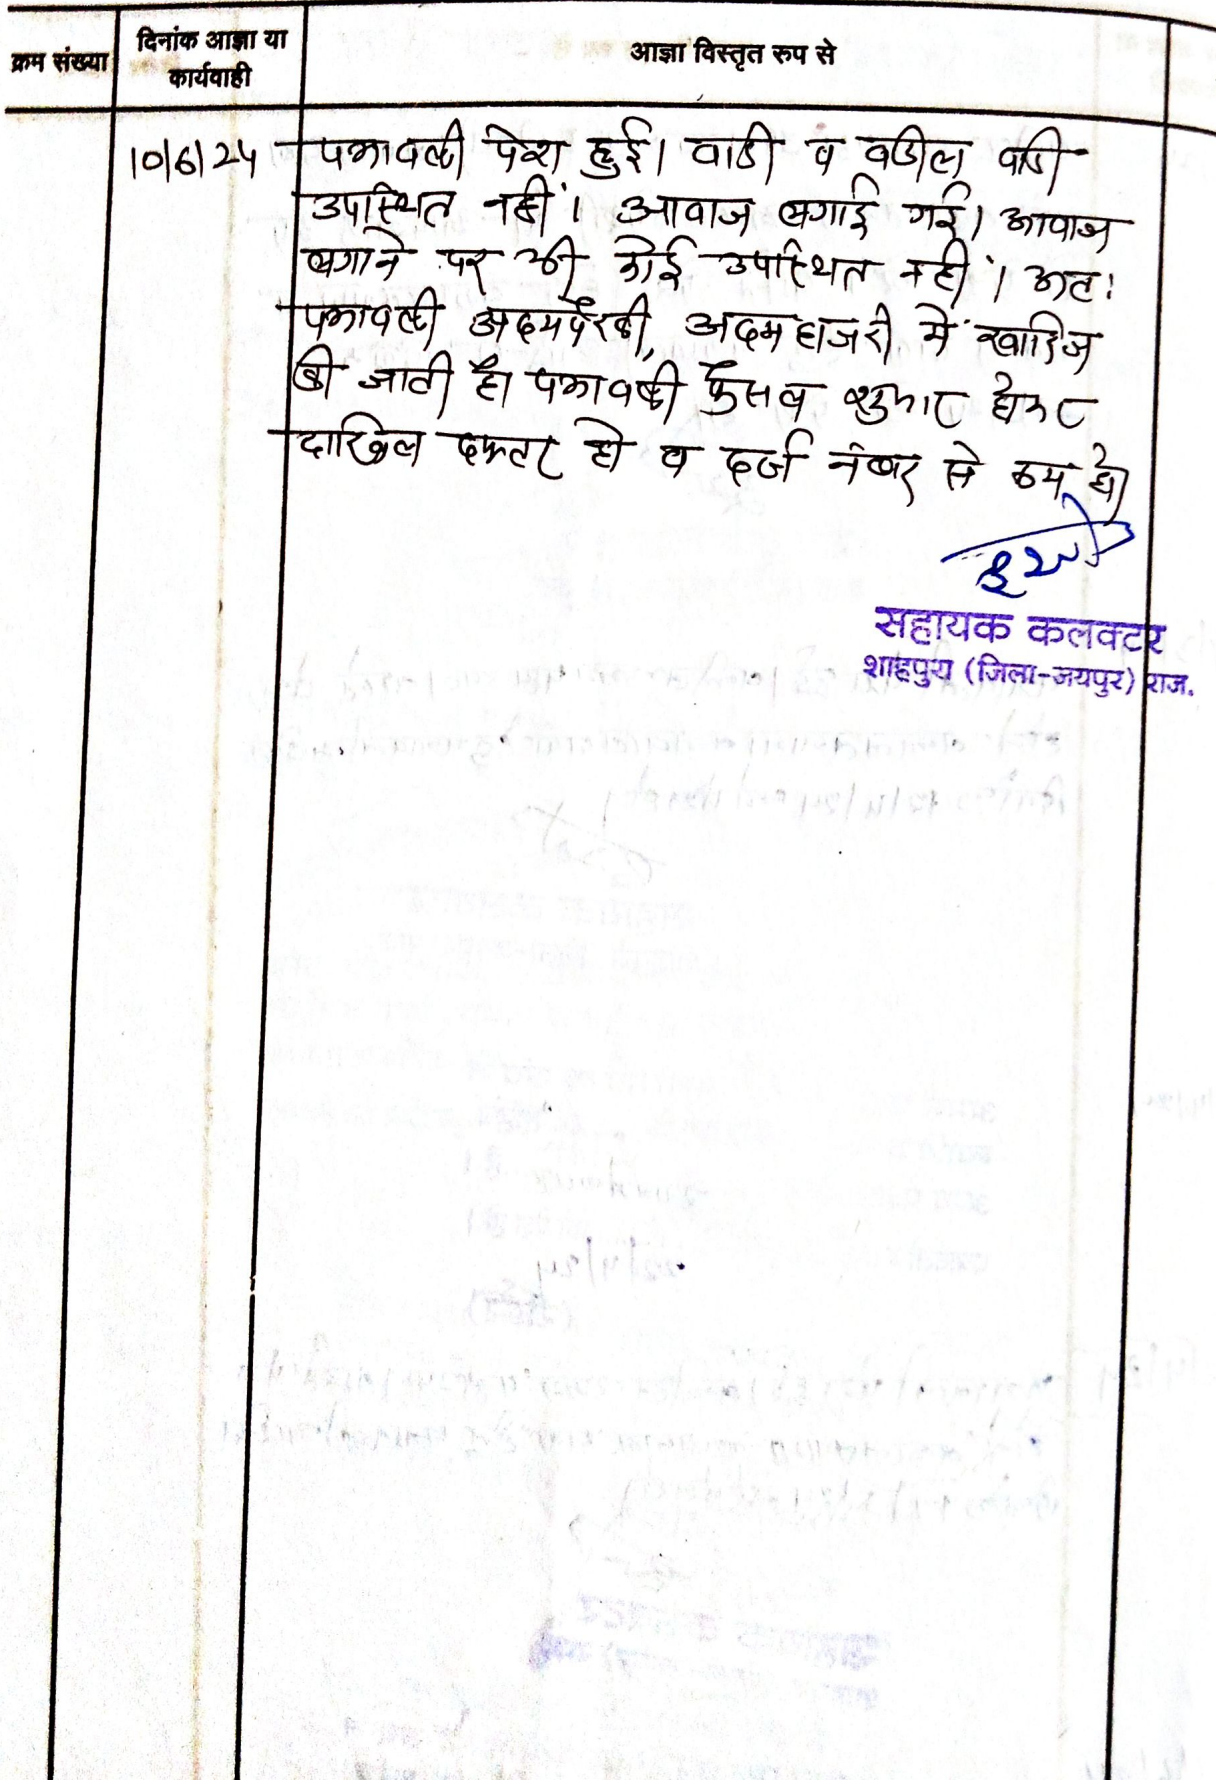 क्रम संख्या
दिनांक आज्ञा या
कार्यवाही
आज्ञा विस्तृत रुप से
10/6/24 पत्रावली पेश हुई। वादी व वकील वादी
उपस्थित नहीं। आवाज लगाई गई। आवाज
लगाने पर भी कोई उपस्थित नहीं। अतः
पत्रावली अदमपैरवी, अदम हाजरी में खारिज
की जाती है। पत्रावली फैसल शुमार होकर
दाखिल दफ्तर हो व दर्ज नंबर से कम हो
सहायक कलक्टर
शाहपुरा (जिला-जयपुर) राज.